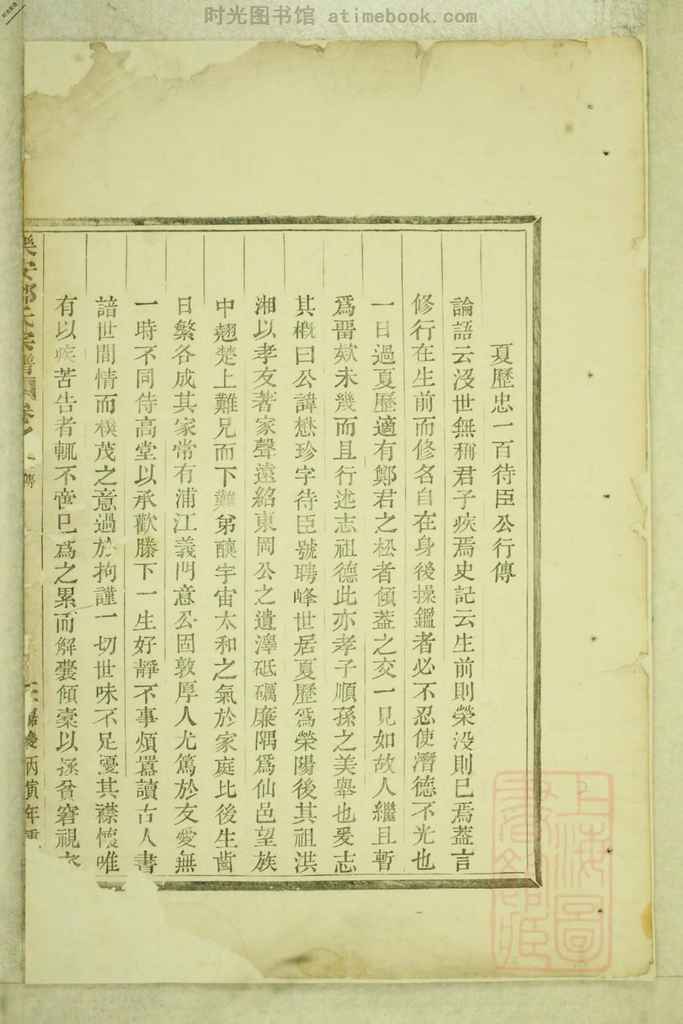 时光图书馆 atimebook.com
夏歷忠一百待臣公行傳
論語云沒世無稱君子疾焉史記云生前則榮没則已焉葢言
修行在生前而修名自在身後操鑑者必不忍使潛德不光也
一日過夏歷適有鄭君之松者傾葢之交一見如故人繼且暫
爲晤欵未幾而且行述志祖德此亦孝子順孫之美舉也爰志
其槪曰公諱懋珍字待臣號聘峰世居夏歷爲榮陽後其祖洪
湘以孝友著家聲遠紹東岡公之遺澤砥礪廉隅爲仙邑望族
中翹楚上難兄而下難弟釀宇宙太和之氣於家庭比後生齒
日繁各成其家常有浦江義門意公固敦厚人尤篤於友愛無
一時不同侍高堂以承歡膝下一生好靜不事煩囂讀古人書
諳世間情而樸茂之意過於拘謹一切世味不足憂其襟懷唯
有以疾苦告者輒不啻已爲之累而解囊傾槖以拯貧窘視
宗譜 卷 傳 丙寅年
上海圖書館